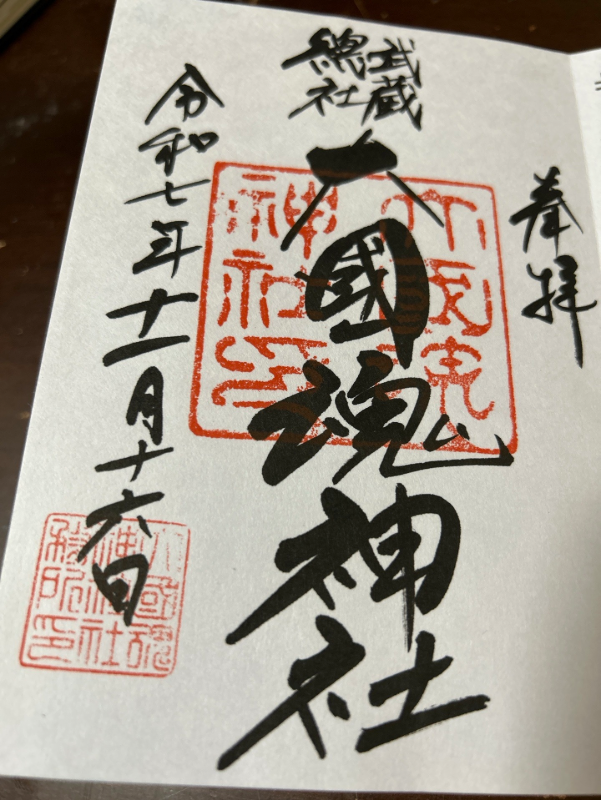 奉拝
武蔵
總社
大國魂神社
令和七年十一月十六日
大國魂
神社印
大國魂
神社
務所印